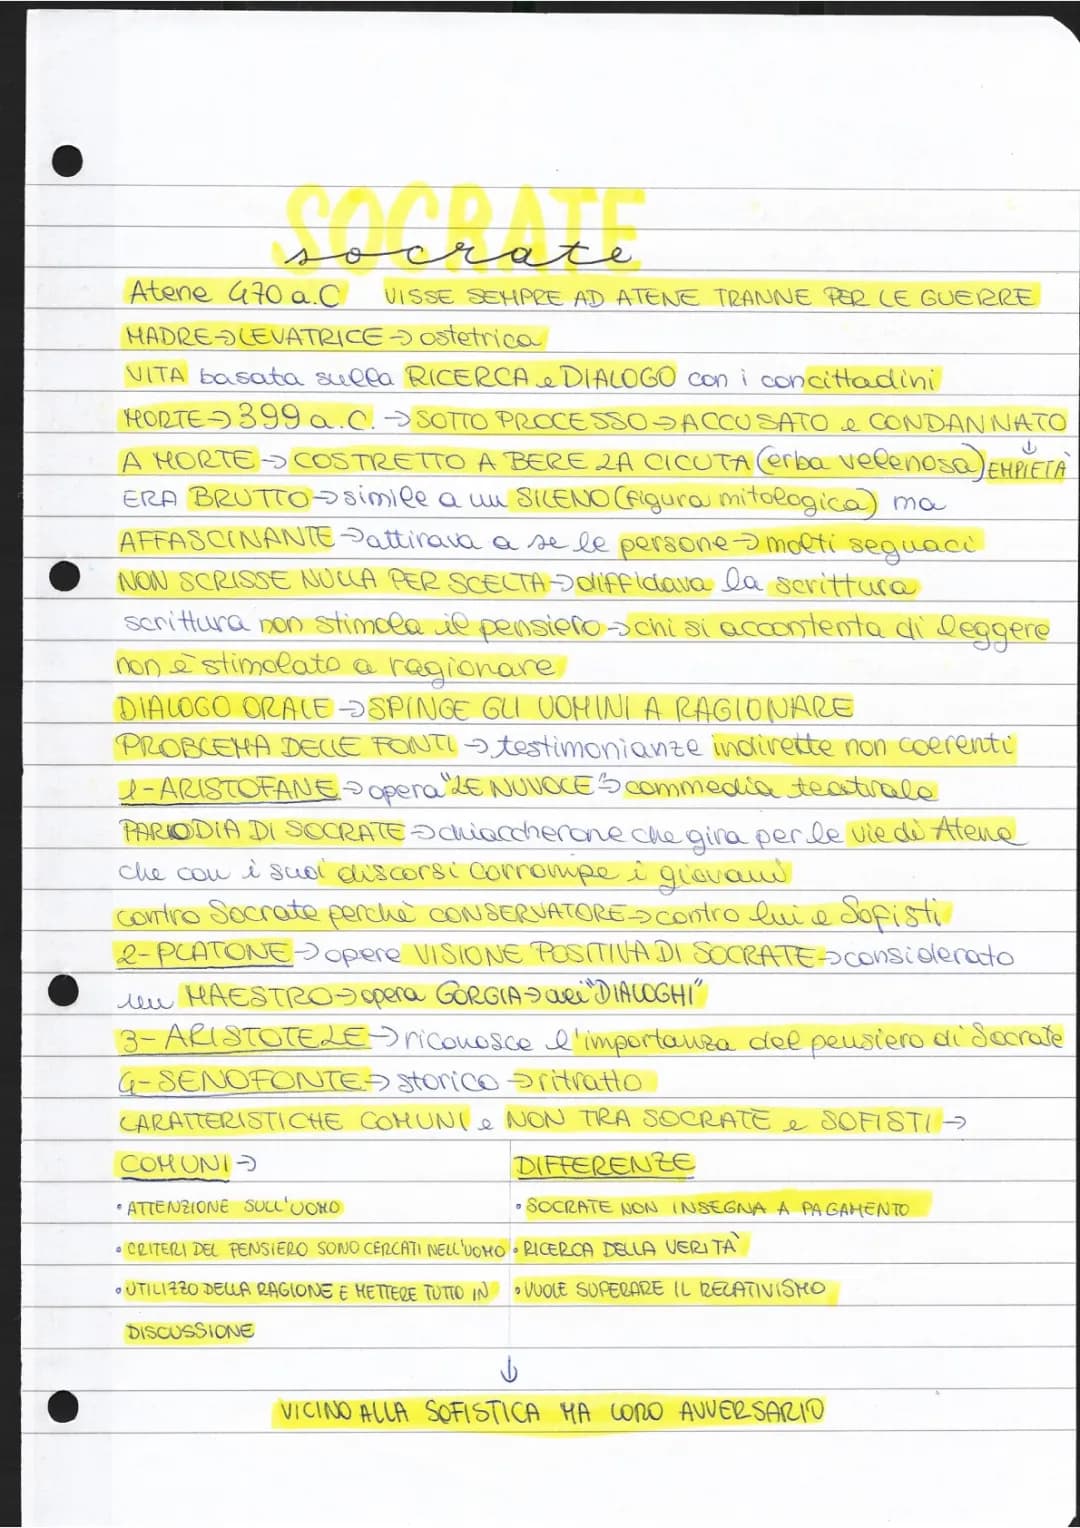 SOCRATE
socrate
Atene 470 a.C VISSE SEMPRE AD ATENE TRANNE PER LE GUERRE
MADRE→LEVATRICE→ostetrica
VITA basata sulla RICERCA e DIALOGO con i concittadini
MORTE→399 a.C.→SOTTO PROCESSO→ACCUSATO e CONDANNATO
A MORTE→COSTRETTO A BERE LA CICUTA (erba velenosa) ↓ EMPIETÀ
ERA BRUTTO→simile a un SILENO (figura mitologica) ma
AFFASCINANTE→attirava a se le persone→molti seguaci
NON SCRISSE NULLA PER SCELTA→diffidava la scrittura
scrittura non stimola il pensiero→chi si accontenta di leggere
non è stimolato a ragionare
DIALOGO ORALE→SPINGE GLI UOMINI A RAGIONARE
PROBLEMA DELLE FONTI→testimonianze indirette non coerenti
1-ARISTOFANE→opera "LE NUVOLE"→commedia teatrale
PARIODIA DI SOCRATE→chiaccherone che gira per le vie di Atene
che con i suoi discorsi corrompe i giovani
contro Socrate perchè CONSERVATORE→contro lui e Sofisti
2-PLATONE→opere VISIONE POSITIVA DI SOCRATE→considerato
un MAESTRO→opera GORGIA→nei "DIALOGHI"
3-ARISTOTELE→riconosce l'importanza del pensiero di Socrate
4-SENOFONTE→storico→ritratto
CARATTERISTICHE COMUNI e NON TRA SOCRATE e SOFISTI→
COMUNI→ DIFFERENZE
•ATTENZIONE SULL'UOMO •SOCRATE NON INSEGNA A PAGAMENTO
•CRITERI DEL PENSIERO SONO CERCATI NELL'UOMO •RICERCA DELLA VERITÀ
•UTILIZZO DELLA RAGIONE E METTERE TUTTO IN •VUOLE SUPERARE IL RELATIVISMO
DISCUSSIONE
↓
VICINO ALLA SOFISTICA MA LORO AVVERSARIO